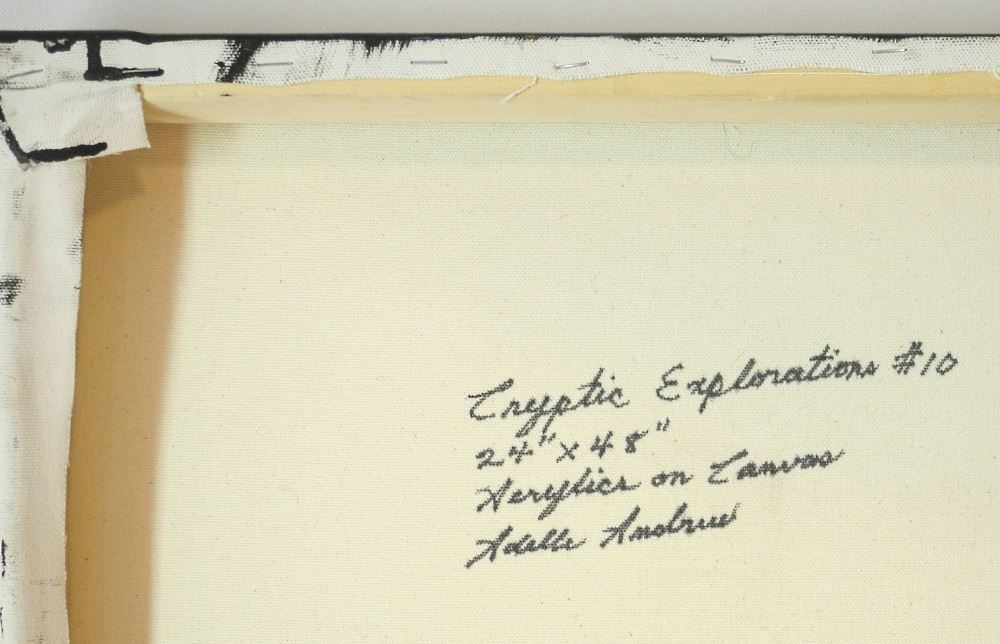 Cryptic Explorations #10
24" x 48"
Acrylics on Canvas
Adelle Andrew